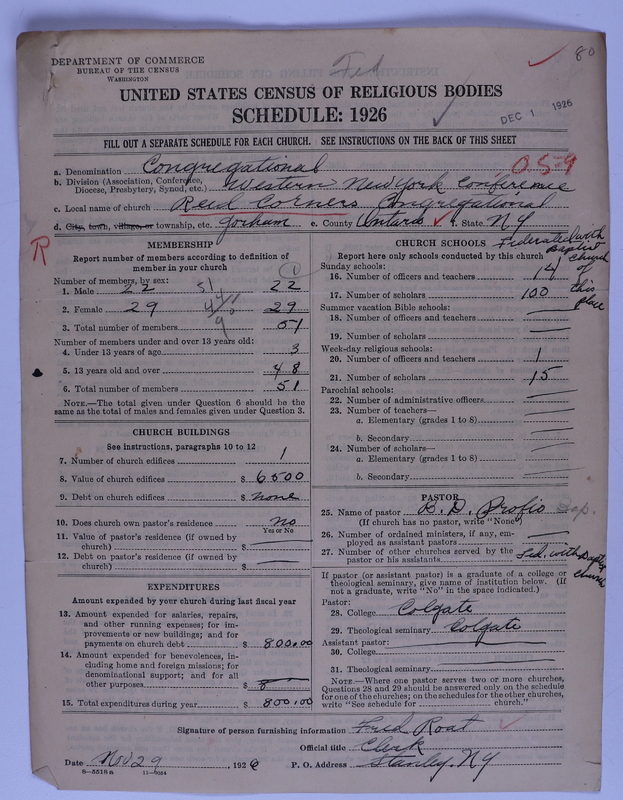 80
DEPARTMENT OF COMMERCE
BUREAU OF THE CENSUS
WASHINGTON
Fed
UNITED STATES CENSUS OF RELIGIOUS BODIES
SCHEDULE: 1926
DEC 1 1926
FILL OUT A SEPARATE SCHEDULE FOR EACH CHURCH. SEE INSTRUCTIONS ON THE BACK OF THIS SHEET
a. Denomination Congregational 0-5-9
b. Division (Association, Conference, Diocese, Presbytery, Synod, etc.) Western New York Conference
c. Local name of church Reed Corners Congregational
d. City, town, village, or township, etc. Gorham e. County Ontario f. State N.Y
R
MEMBERSHIP
Report number of members according to definition of
member in your church
Number of members, by sex:
1. Male 22 51 1 22
2. Female 29 29
9
3. Total number of members 51
Number of members under and over 13 years old:
4. Under 13 years of age 3
5. 13 years old and over 48
6. Total number of members 51
NOTE.—The total given under Question 6 should be
same as the total of males and females given under Question 3.
CHURCH BUILDINGS
See instructions, paragraphs 10 to 12
7. Number of church edifices 1
8. Value of church edifices $ 6500
9. Debt on church edifices $ none
10. Does church own pastor's residence no
Yes or No
11. Value of pastor's residence (if owned by
church) $
12. Debt on pastor's residence (if owned by
church) $
EXPENDITURES
Amount expended by your church during last fiscal year
13. Amount expended for salaries, repairs,
and other running expenses; for im-
provements or new buildings; and for
payments on church debt $ 800.00
14. Amount expended for benevolences, in-
cluding home and foreign missions; for
denominational support; and for all
other purposes $
15. Total expenditures during year $ 800.00
CHURCH SCHOOLS Federated with Baptist Church of this place
Report here only schools conducted by this church
Sunday schools:
16. Number of officers and teachers 14
17. Number of scholars 100
Summer vacation Bible schools:
18. Number of officers and teachers
19. Number of scholars
Week-day religious schools:
20. Number of officers and teachers 1
21. Number of scholars 15
Parochial schools:
22. Number of administrative officers
23. Number of teachers—
a. Elementary (grades 1 to 8)
b. Secondary
24. Number of scholars—
a. Elementary (grades 1 to 8)
b. Secondary
PASTOR
25. Name of pastor B. D. Profio Bap.
(If church has no pastor, write "None")
26. Number of ordained ministers, if any, em-
ployed as assistant pastors
27. Number of other churches served by the
pastor or his assistants Fed. with Baptist church
If pastor (or assistant pastor) is a graduate of a college or
theological seminary, give name of institution below. (If
not a graduate, write "No" in the space indicated.)
Pastor:
28. College Colgate
29. Theological seminary Colgate
Assistant pastor:
30. College
31. Theological seminary
NOTE.—Where one pastor serves two or more churches,
Questions 28 and 29 should be answered only on the schedule
for one of the churches; on the schedules for the other churches,
write "See schedule for church."
Signature of person furnishing information Fred Roat
Official title Clerk
Date Nov 29, 1926 P. O. Address Stanley. N.Y
8-5518a 11-9604